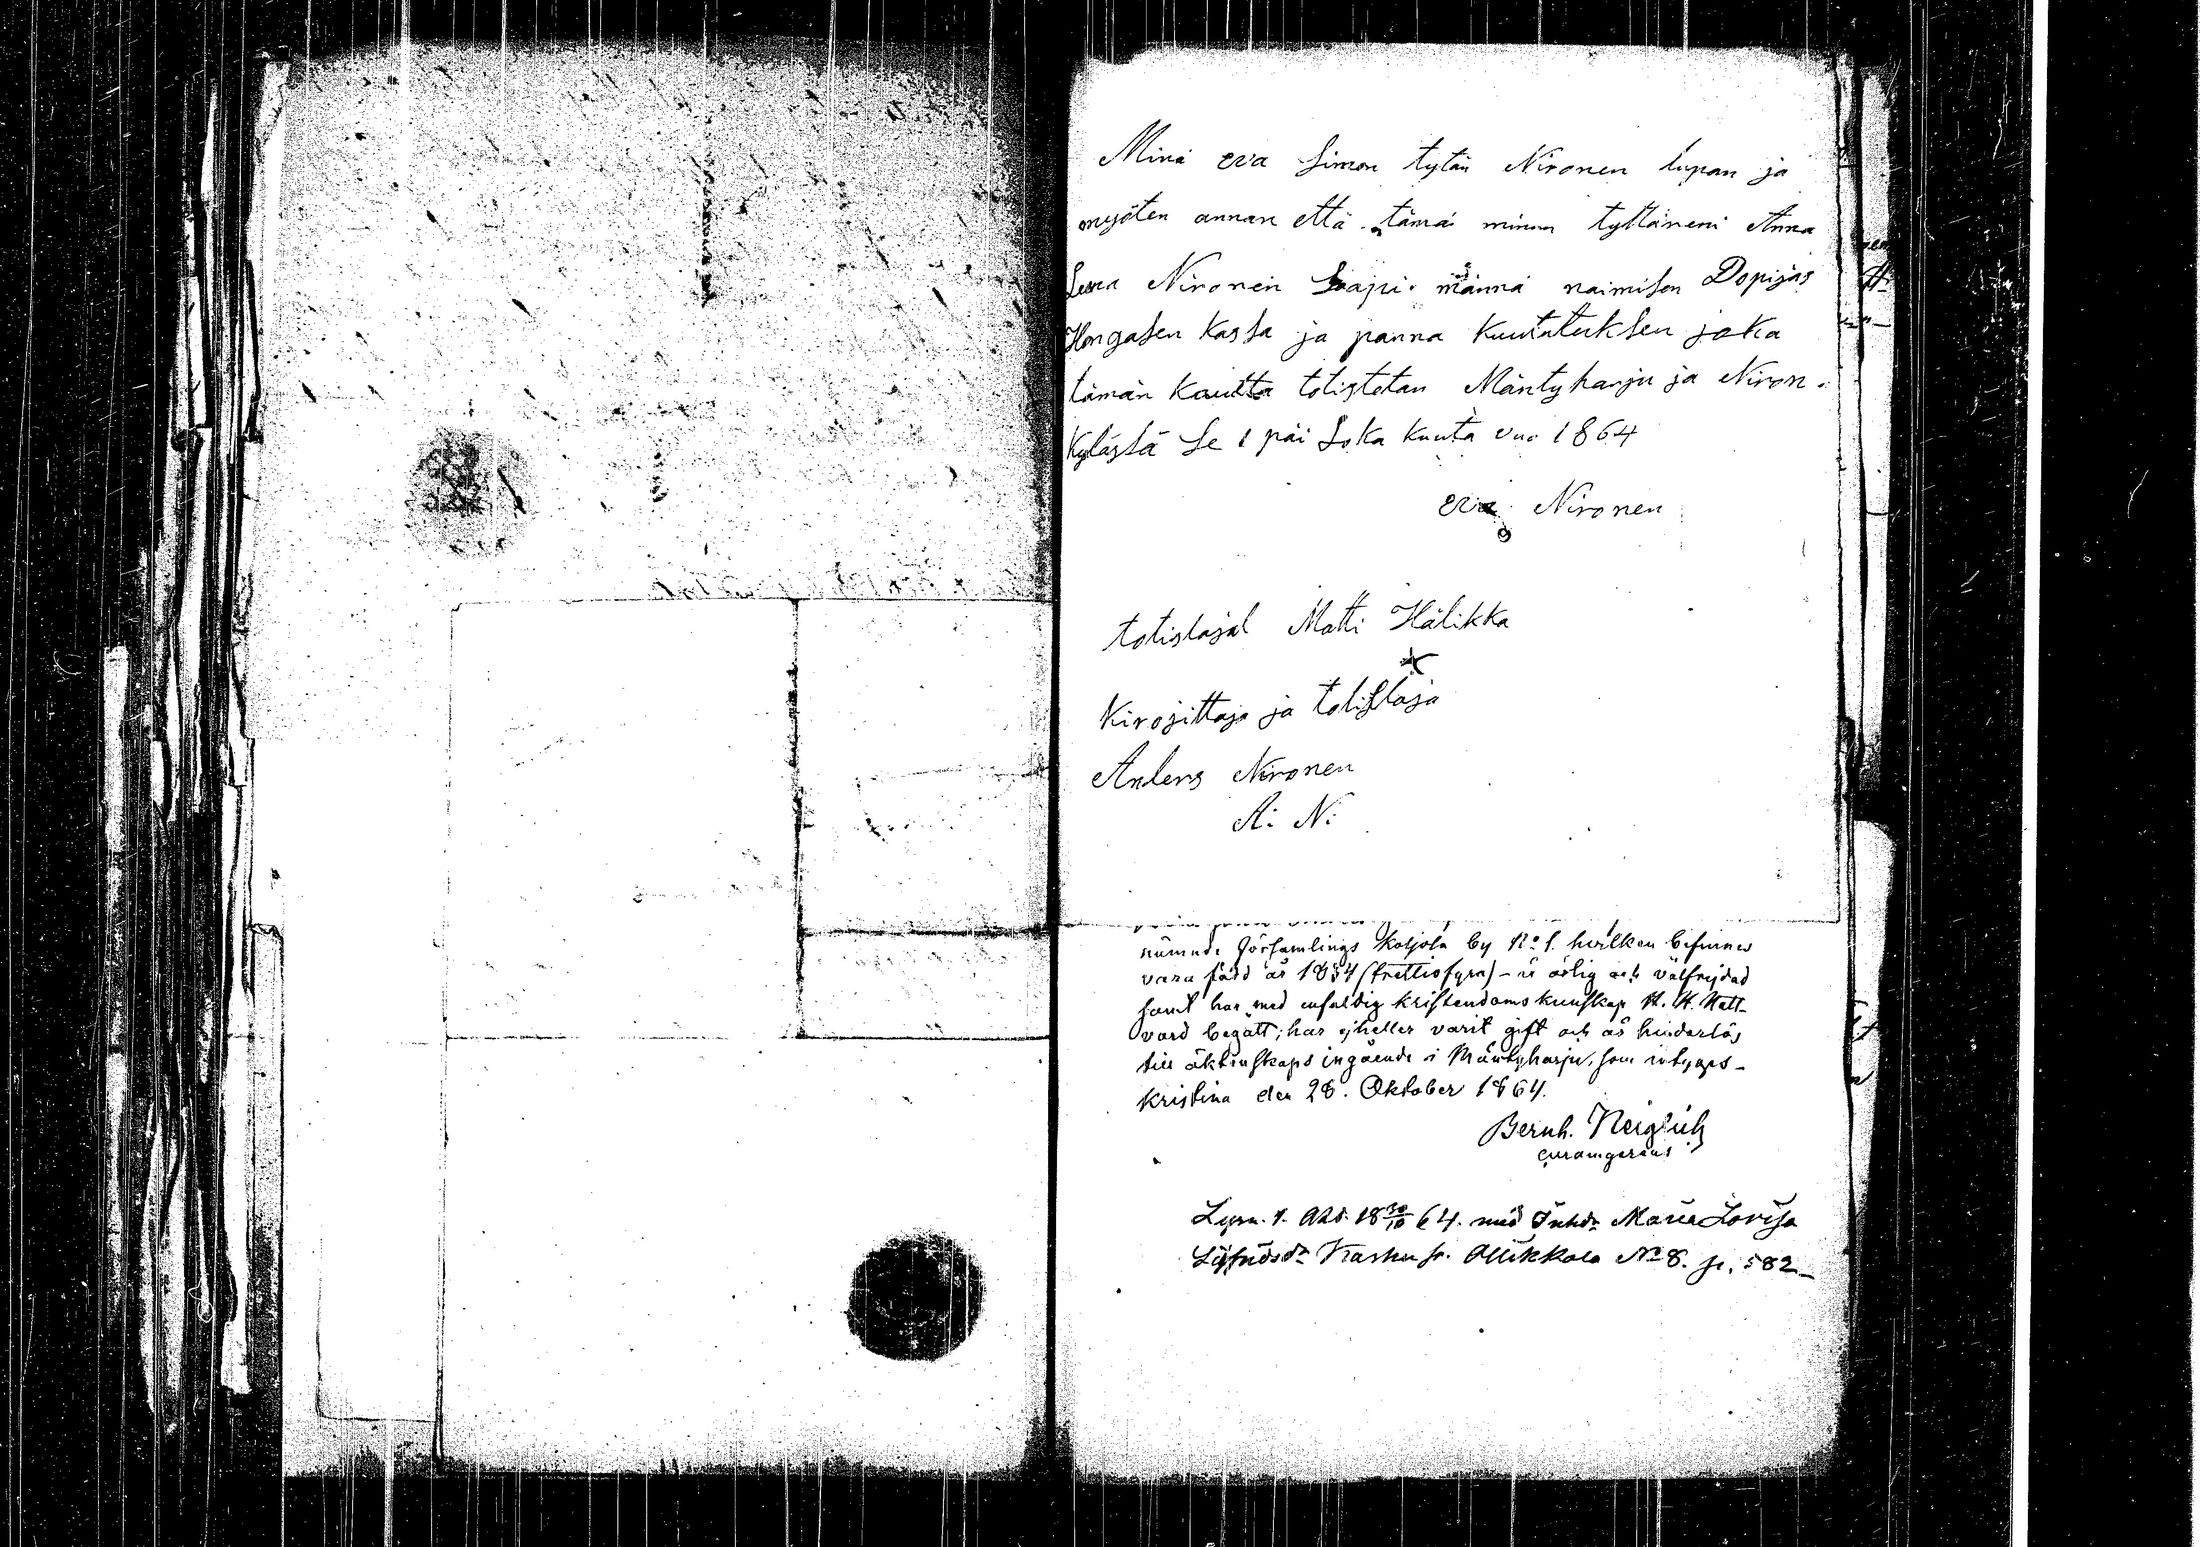 Minä eva Simon tytär Nironen lupan ja
myöten annan että tämä minun tyttäneni Anna
Leena Nironen Saapi männä naimisen Dopijas
Hongasen kassa ja panna kuulutuksen joka
tämän kautta totistetan Mäntyharju ja Niron.
kylästä Se 1 päi Loka kuuta vuo 1864
eva Nironen
totistajat Matti Hälikka
Kirojittaja ja totistaja
Anders Nironen
A: N:
nämnde församlings Koljola by No 1. hvilken befunnes
vara född år 1834 (trettiofyra) – är ärlig och välfrejdad
samt har med enfaldig kristendoms kunskap H. H. Natt-
vard begått; har ejheller varit gift och är hinderlös
till äktenskaps ingående i Mäntyharju, som intygas –
Kristina den 28. Oktober 1864.
Bernh. Neiglick
curamgerens
Lysn. 1. 18 30/10 64. med Inhdr Maria Lovisa
Sigfridsdr Karhu fr. Ollikkala No 8. p. 582 –